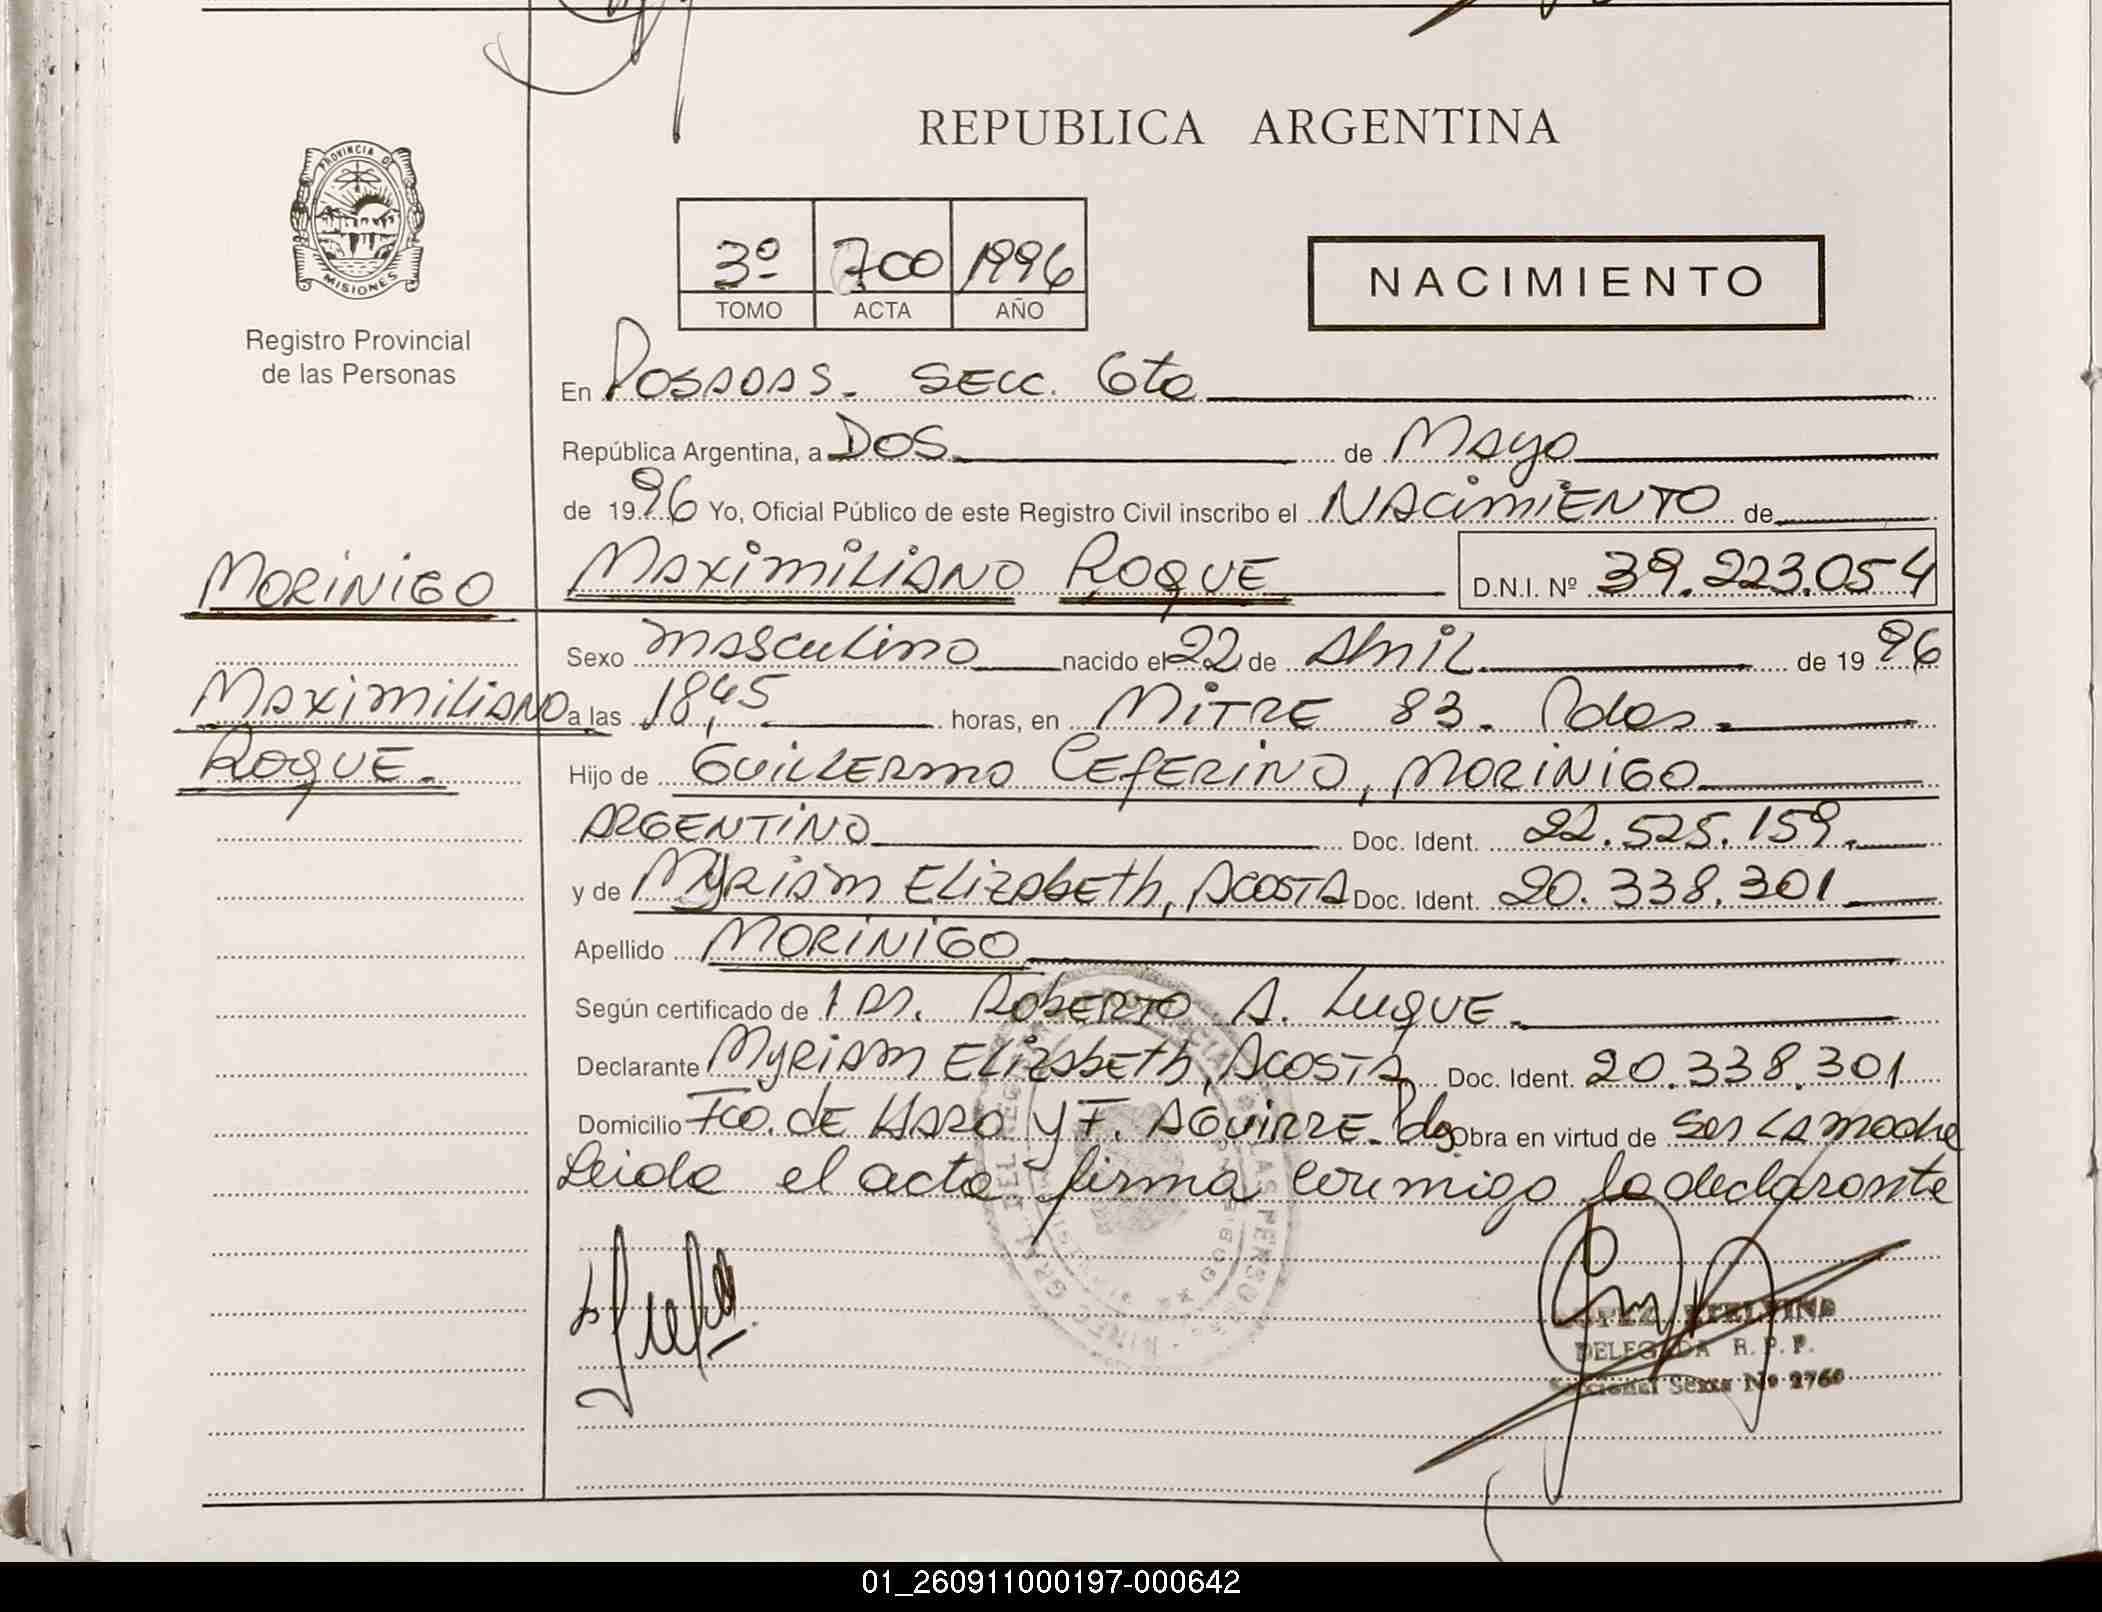 REPUBLICA ARGENTINA
PROVINCIA DE
MISIONES
Registro Provincial
de las Personas
3º 700 1996
TOMO ACTA AÑO
NACIMIENTO
En POSADAS. SECC. 6ta
República Argentina, a DOS de Mayo
de 1996 Yo, Oficial Público de este Registro Civil inscribo el NACIMIENTO de
MORINIGO
MAXIMILIANO ROQUE D.N.I. Nº 39.223.054
Sexo masculino nacido el 22 de Abril de 1996
MAXIMILIANO
a las 18,45 horas, en MITRE 83. Pdas.
ROQUE.
Hijo de GUILLERMO CEFERINO, MORINIGO
ARGENTINO Doc. Ident. 22.525.159.
y de MYRIAM ELIZABETH, ACOSTA Doc. Ident. 20.338.301
Apellido MORINIGO
Según certificado de Dr. ROBERTO A. LUQUE.
Declarante MYRIAM ELIZABETH, ACOSTA Doc. Ident. 20.338.301
Domicilio Fco. DE HARO Y F. AGUIRRE. Pdas. Obra en virtud de ser la madre
Leida el acta firma conmigo la declarante
DELEGADA R. P. P.
Seccional Sexta Nº 2760
01_260911000197-000642